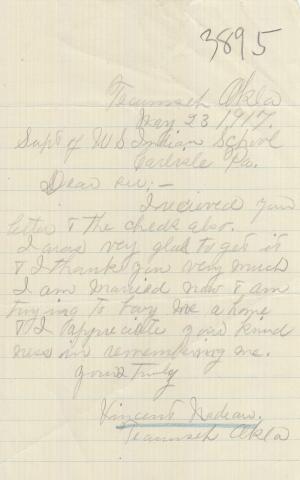 3895
Tecumseh Okla
May 23 1917.
Supt of U S Indian School
Carlisle Pa.
Dear Sir;—
I recieved your
letter & the check also.
I was very glad to get it
& I thank you very much
I am married now & am
trying to buy me a home
& I appreciate your kind
ness in remembering me.
yours truly
Vincent Nadeau.
Tecumseh Okla